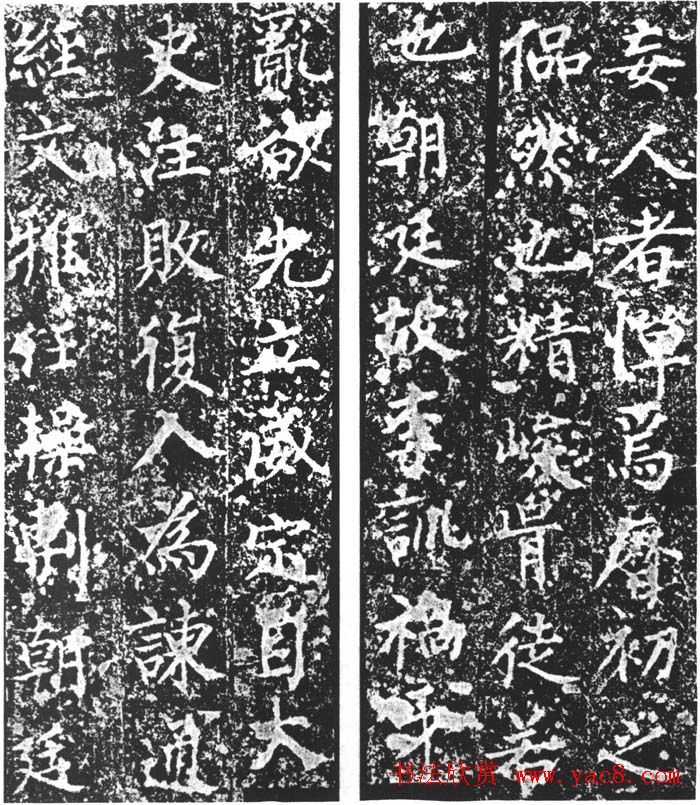 妄人者憚焉曆初之
偘然也精嶸胥徒若
也朝廷故李訓禍牙
亂欲先立威定目大
史注敗復入為諫通
經文雅任操剸朝廷
书法欣赏 www.yac8.com